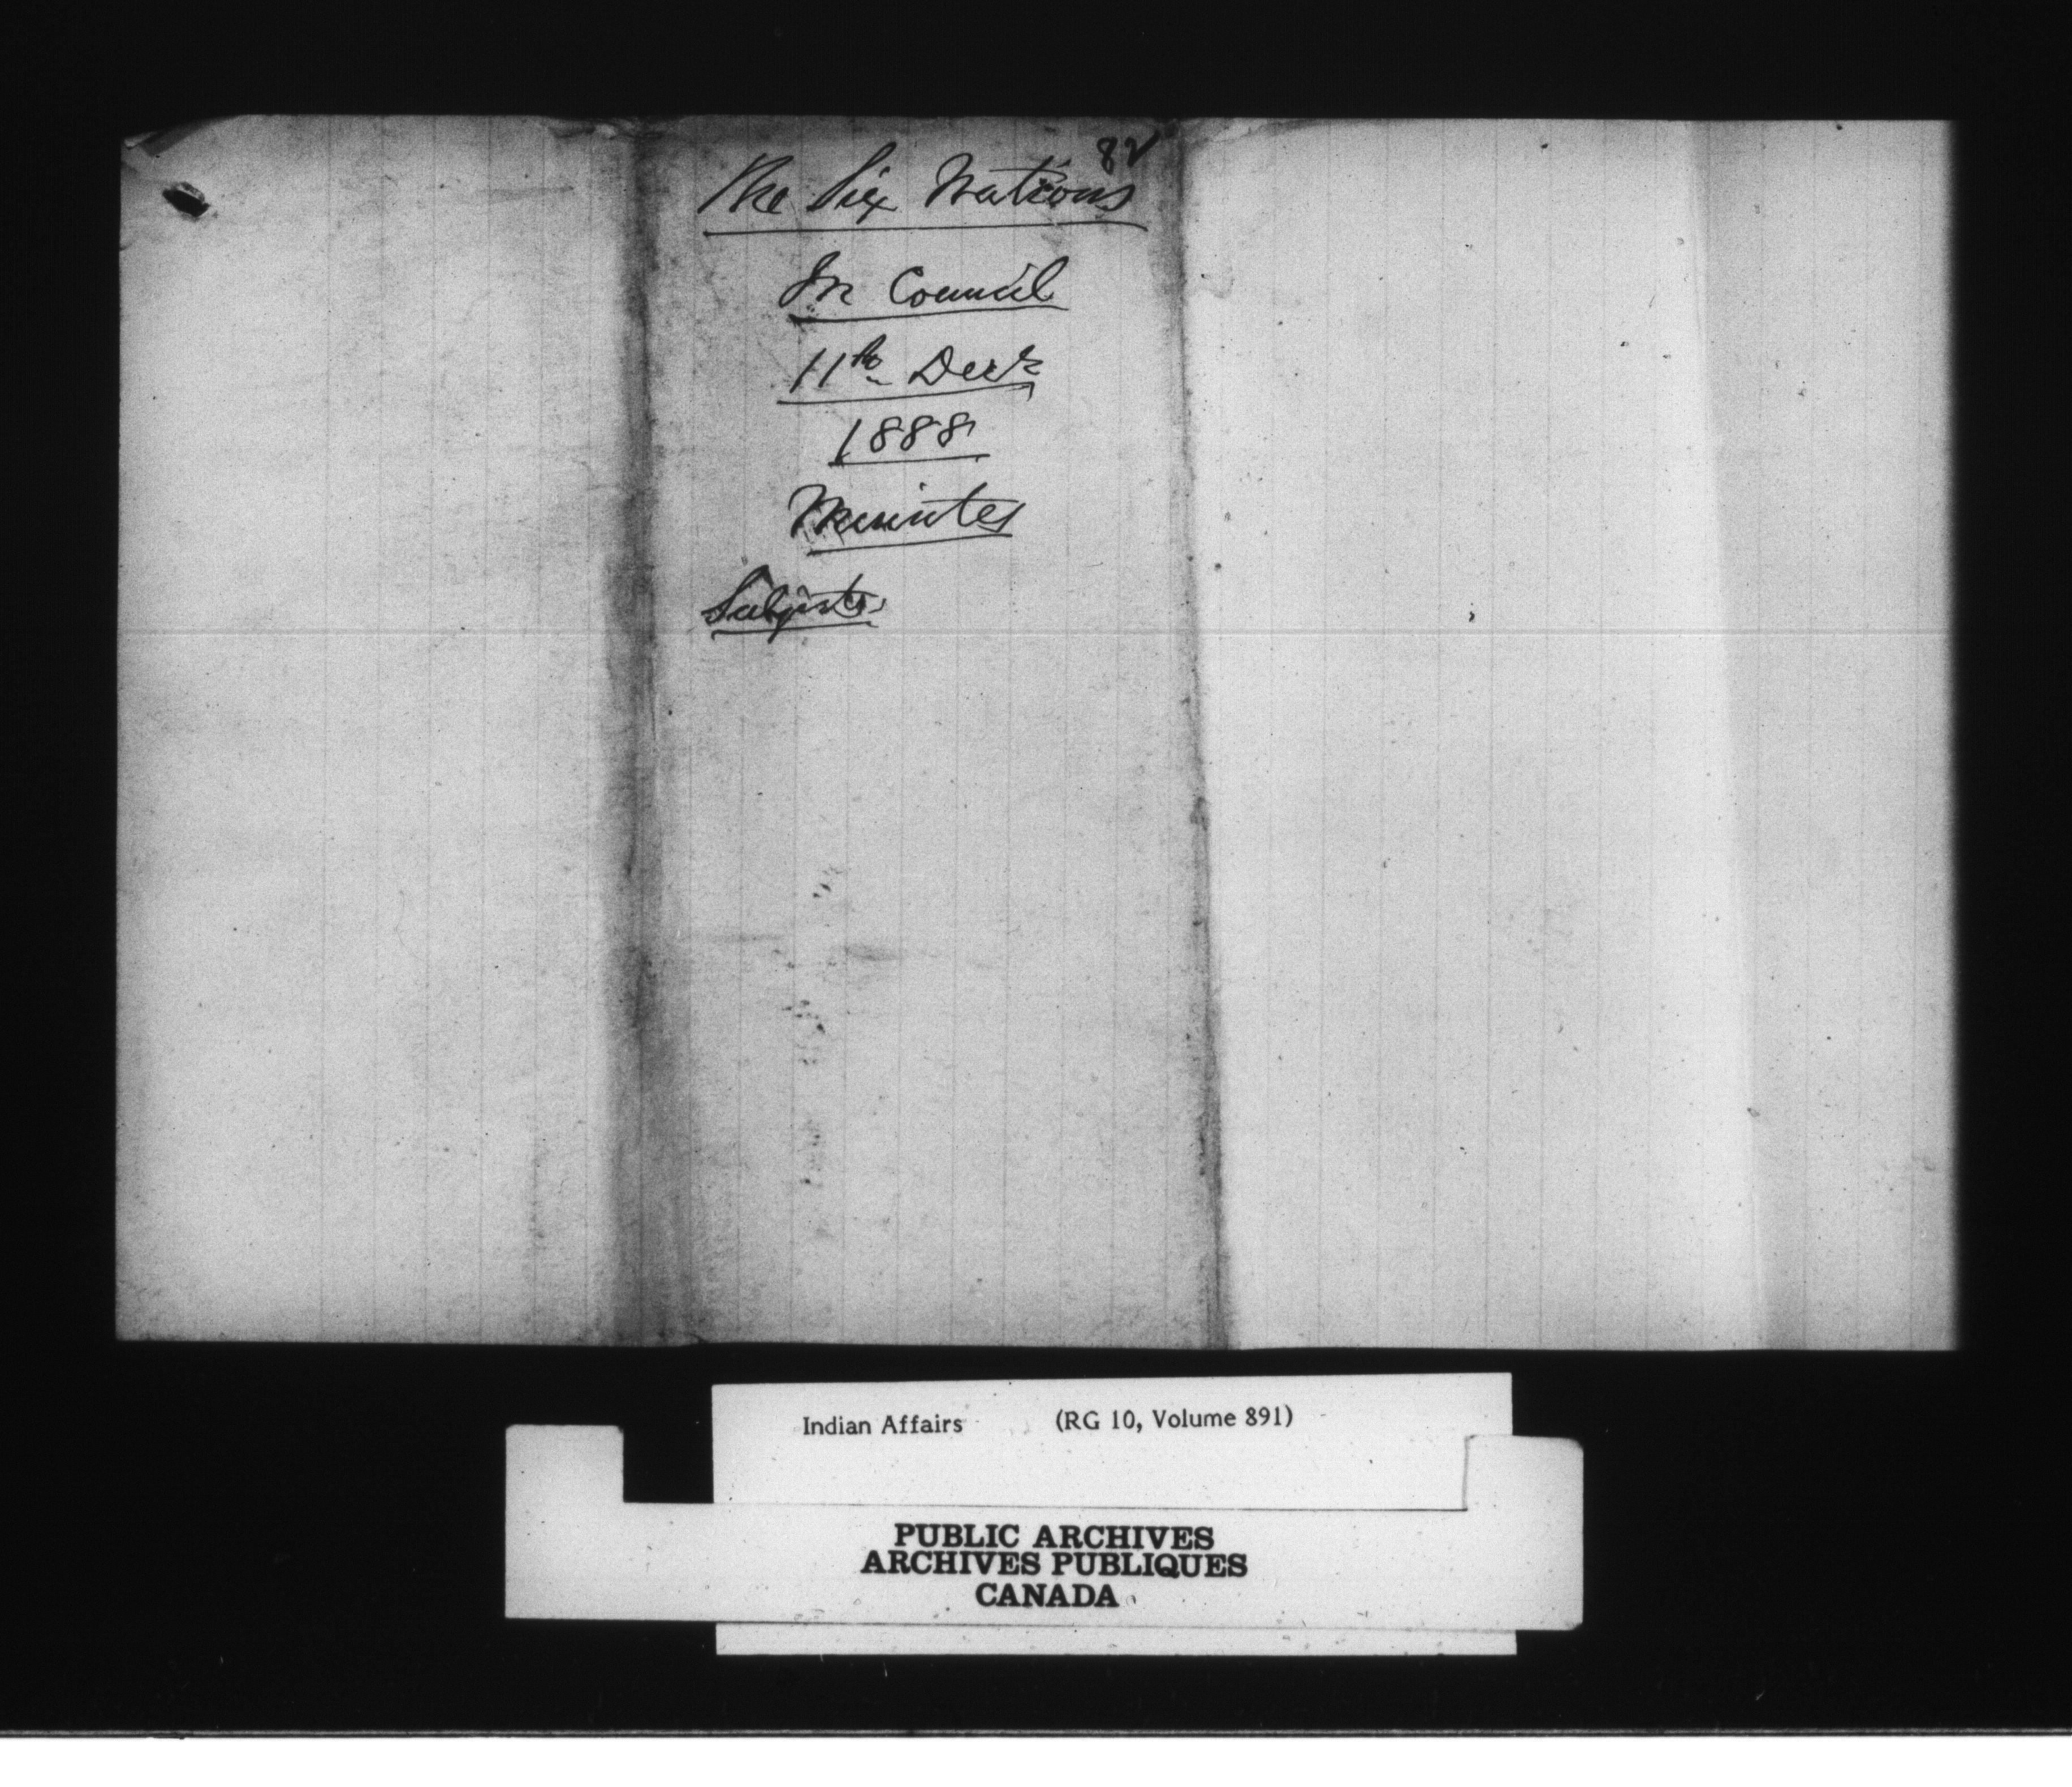 82
The Six Nations
In Council
11th Decr
1888
Minutes
Subjects
Indian Affairs (RG 10, Volume 891)
PUBLIC ARCHIVES
ARCHIVES PUBLIQUES
CANADA